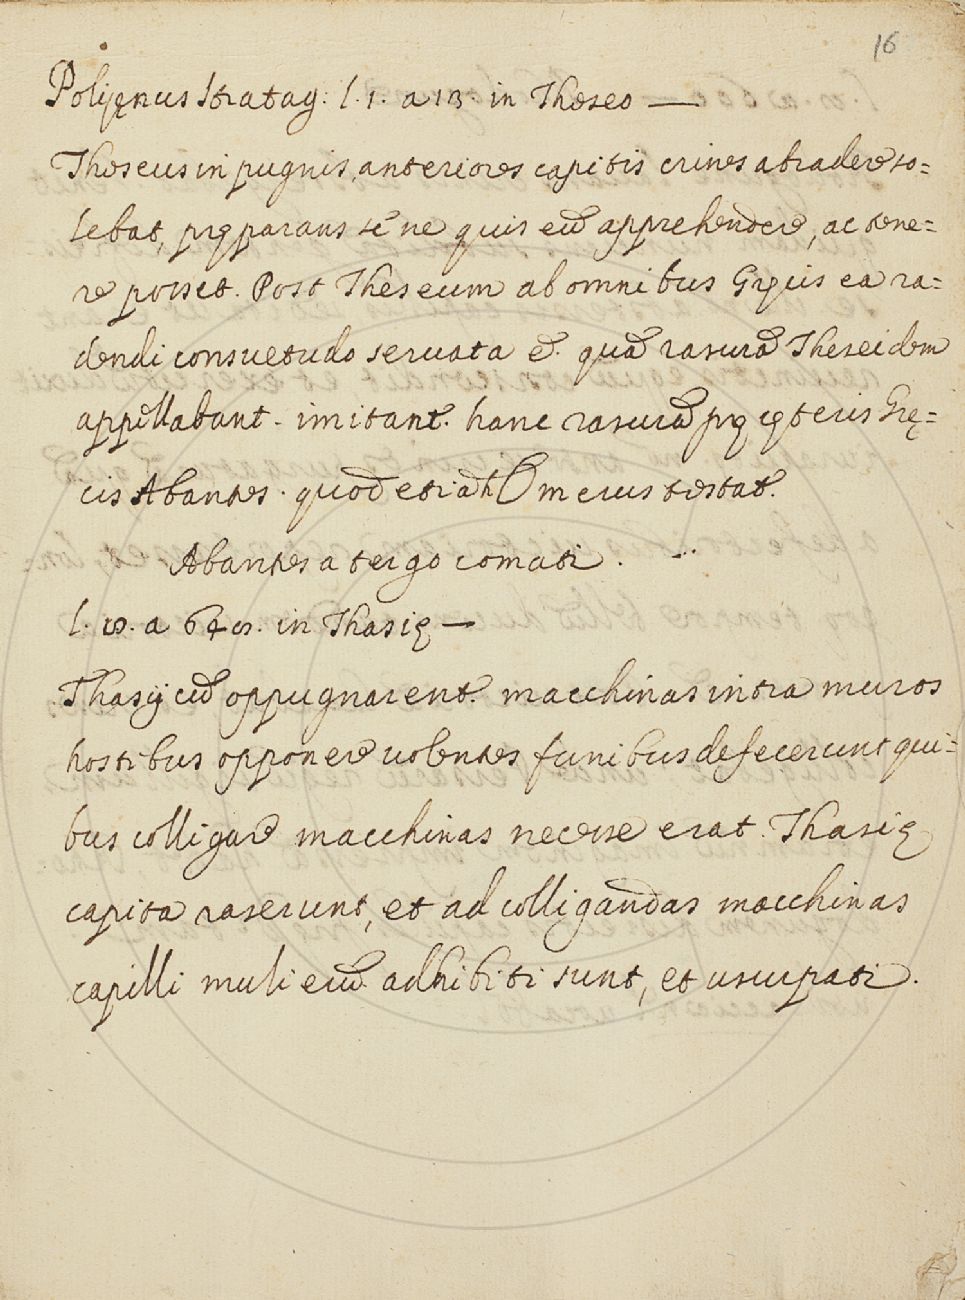 16
Polijęnus Stratag: l. 1. a 13. in Theseo —
Theseus in pugnis, anteriores capitis crines abradere so=
lebat, pręparans sē ne quis eū apprehendere, ac tene=
re posset. Post Theseum ab omnibus Gręcis ea ra=
dendi consuetudo seruata ē. quā rasurā Theseidem
appellabant. imitant. hanc rasurā prę cęteris Grę=
cis Abantes. quod etiā hOmerus testat.
Abantes a tergo comati.
in Thasię —
Thasij cū oppugnarent. macchinas intra muros
hostibus opponere uolentes funibus defecerunt qui=
bus colligare macchinas necesse erat. Thasię
capita raserunt, et ad colligandas macchinas
capilli mulierū adhibiti sunt, et usurpati.